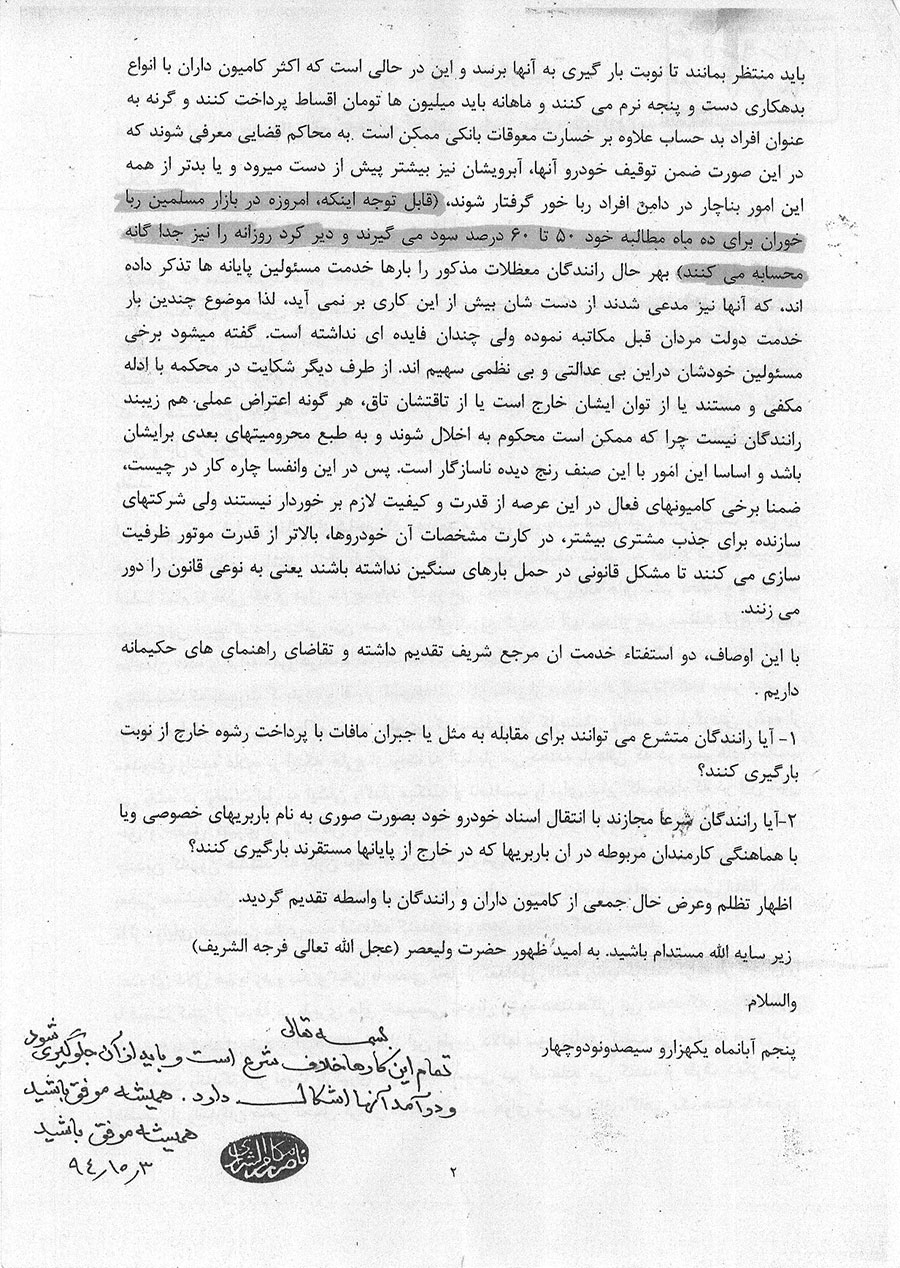 باید منتظر بمانند تا نوبت بار گیری به آنها برسد و این در حالی است که اکثر کامیون داران با انواع
بدهکاری دست و پنجه نرم می کنند و ماهانه باید میلیون ها تومان اقساط پرداخت کنند و گرنه به
عنوان افراد بد حساب علاوه بر خسارت معوقات بانکی ممکن است .به محاکم قضایی معرفی شوند که
در این صورت ضمن توقیف خودرو آنها، آبرویشان نیز بیشتر پیش از دست میرود و یا بدتر از همه
این امور بناچار در دامن افراد ربا خور گرفتار شوند، (قابل توجه اینکه، امروزه در بازار مسلمین ربا
خوران برای ده ماه مطالبه خود ۵۰ تا ۶۰ درصد سود می گیرند و دیر کرد روزانه را نیز جدا گانه
محسابه می کنند) بهر حال رانندگان معظلات مذکور را بارها خدمت مسئولین پایانه ها تذکر داده
اند، که آنها نیز مدعی شدند از دست شان بیش از این کاری بر نمی آید، لذا موضوع چندین بار
خدمت دولت مردان قبل مکاتبه نموده ولی چندان فایده ای نداشته است. گفته میشود برخی
مسئولین خودشان دراین بی عدالتی و بی نظمی سهیم اند. از طرف دیگر شکایت در محکمه با ادله
مکفی و مستند یا از توان ایشان خارج است یا از تاقتشان تاق، هر گونه اعتراض عملی هم زیبند
رانندگان نیست چرا که ممکن است محکوم به اخلال شوند و به طبع محرومیتهای بعدی برایشان
باشد و اساسا این امور با این صنف رنج دیده ناسازگار است. پس در این وانفسا چاره کار در چیست،
ضمنا برخی کامیونهای فعال در این عرصه از قدرت و کیفیت لازم بر خوردار نیستند ولی شرکتهای
سازنده برای جذب مشتری بیشتر، در کارت مشخصات آن خودروها، بالاتر از قدرت موتور ظرفیت
سازی می کنند تا مشکل قانونی در حمل بارهای سنگین نداشته باشند یعنی به نوعی قانون را دور
می زنند.
با این اوصاف، دو استفتاء خدمت ان مرجع شریف تقدیم داشته و تقاضای راهنمای های حکیمانه
داریم .
۱- آیا رانندگان متشرع می توانند برای مقابله به مثل یا جبران مافات با پرداخت رشوه خارج از نوبت
بارگیری کنند؟
۲-آیا رانندگان شرعا مجازند با انتقال اسناد خودرو خود بصورت صوری به نام باربریهای خصوصی ویا
با هماهنگی کارمندان مربوطه در ان باربریها که در خارج از پایانها مستقرند بارگیری کنند؟
اظهار تظلم وعرض حال جمعی از کامیون داران و رانندگان با واسطه تقدیم گردید.
زیر سایه الله مستدام باشید. به امید ظهور حضرت ولیعصر (عجل الله تعالی فرجه الشریف)
والسلام
پنجم آبانماه یکهزارو سیصدونودوچهار
بسمه تعالی
تمام این کارها خلاف شرع است و باید از آن جلوگیری شود
و درآمد آنها اشکال دارد. همیشه موفق باشید
همیشه موفق باشید
۹۴/۱۰/۳
ناصر مکارم الشیرازی
۲